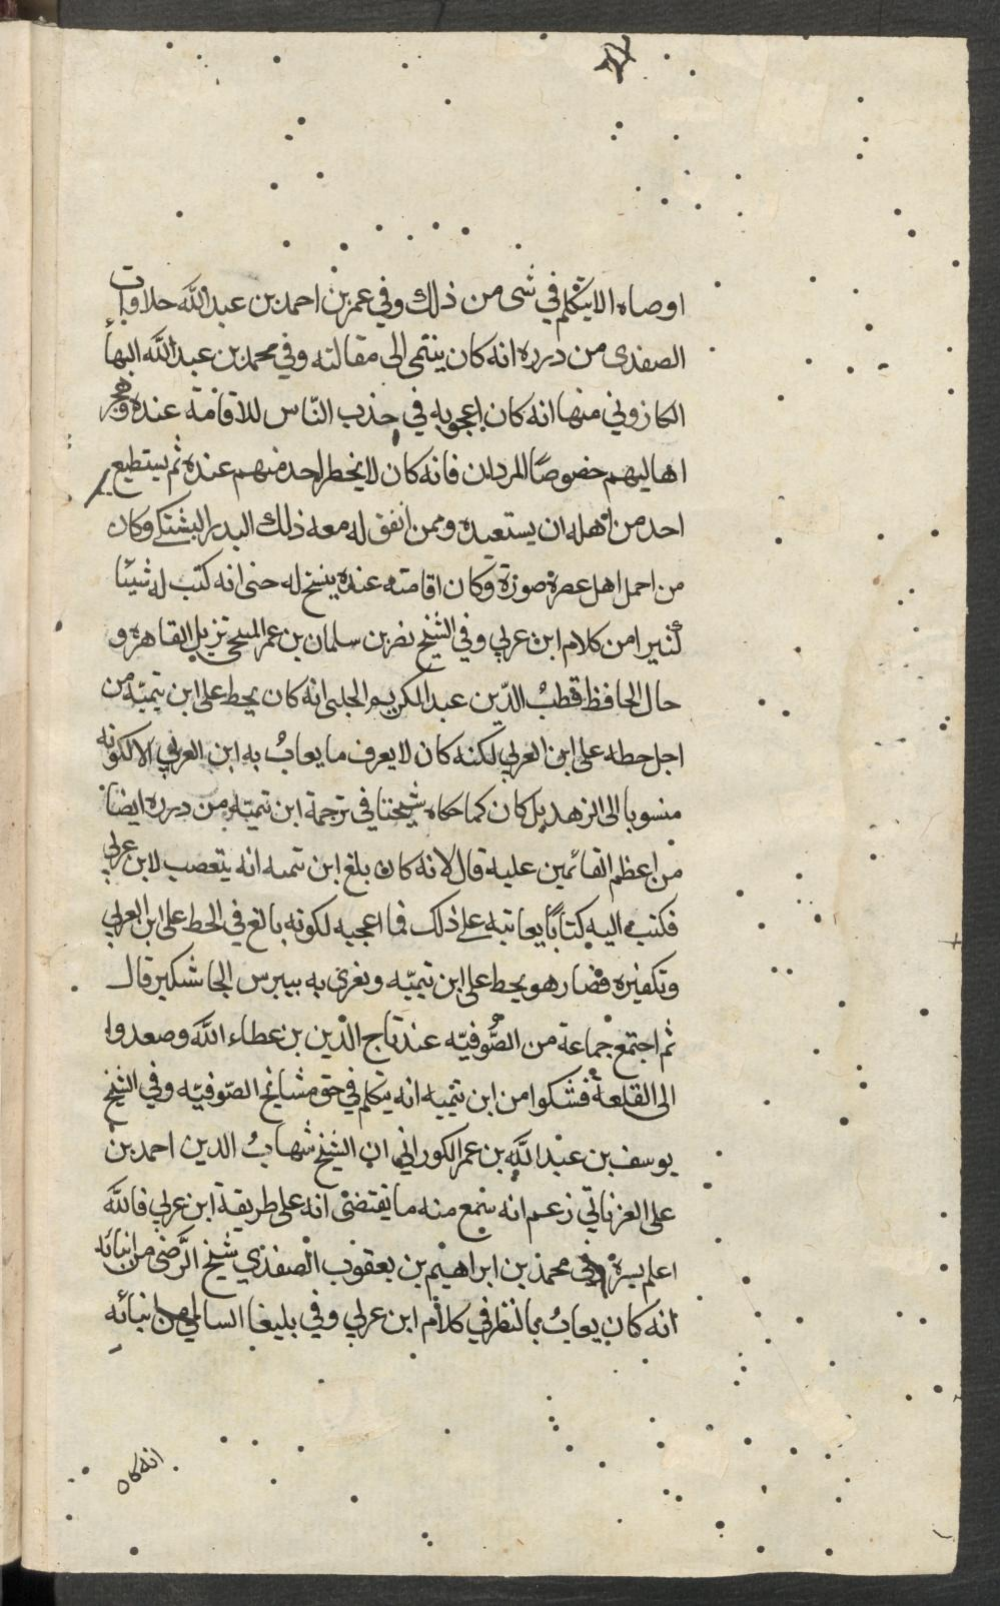 اوصاه الا يتكلم في شى من ذلك وفي عمر بن احمد بن عبد الله حلاوات
الصفدى من درره انه كان ينتمى الى مقالته وفي محمد بن عبد الله البهأ
الكازوني منها انه كان اعجوبه في جذب الناس للاقامة عنده وهجر
اهاليهم خصوصًا المردان فانه كان لا يخطر احد منهم عنده ثم يستطيع
احد من اهله ان يستعيده وممن اتفق له معه ذلك البدر البشتكي وكان
من اجمل اهل عصره صورة وكان اقامته عنده ينسخ له حتى انه كتب له شيئا
كثيرا من كلام ابن عربي وفي الشيخ نصر بن سلمان بن عمر المنبجي نزيل القاهره و
حال الحافظ قطبُ الدّين عبد الكريم الحلبى انه كان يحط على ابن تيميّة من
اجل حطه على ابن العربي لكنه كان لا يعرف ما يعابُ به ابن العربي الا لكونه
منسوبا الى الزهد بل كان كما حكاه شيخنا في ترجمة ابن تيميّه من درره ايضا
من اعظم القائمين عليه قال لانه كان بلغ ابن تيميه انه يتعصب لابن عربي
فكتب اليه كتابًا يعاتبه على ذلك فما اعجبه لكونه بالغ في الحط على ابن العربي
وتكفيره فصار هو يحط على ابن تيميّه ويغرى به بيبرس الجاشنكير قال
ثم اجتمع جماعة من الصُّوفيّه عند تاج الدّين بن عطاء الله وصعدوا
الى القلعة فشكوا من ابن تيميه انه يتكلم في حق مشايخ الصّوفيّه وفي الشيخ
يوسف بن عبد الله بن عمر الكوراني ان الشيخ شهابُ الدين احمد بن
على العرياني زعم انه سمع منه ما يقتضى انه على طريقة ابن عربي فالله
اعلم بسره وفي محمد بن ابراهيم بن يعقوب الصفدي شيخ الرّضى من انبائه
انه كان يعابُ بالنظر في كلام ابن عربي وفي يلبغا السالمي من انبائه
انه كان